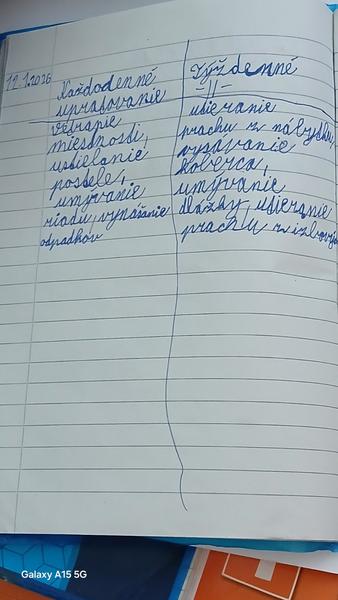 12.1.2026
Každodenné
upratovanie
vetranie
miestnosti,
ustielanie
postele,
umývanie
riadu, vynášanie
odpadkov
Týždenné
-||-
utieranie
prachu z nábytku
vysávanie
koberca,
umývanie
dlažby, utieranie
prachu z izbových
Galaxy A15 5G